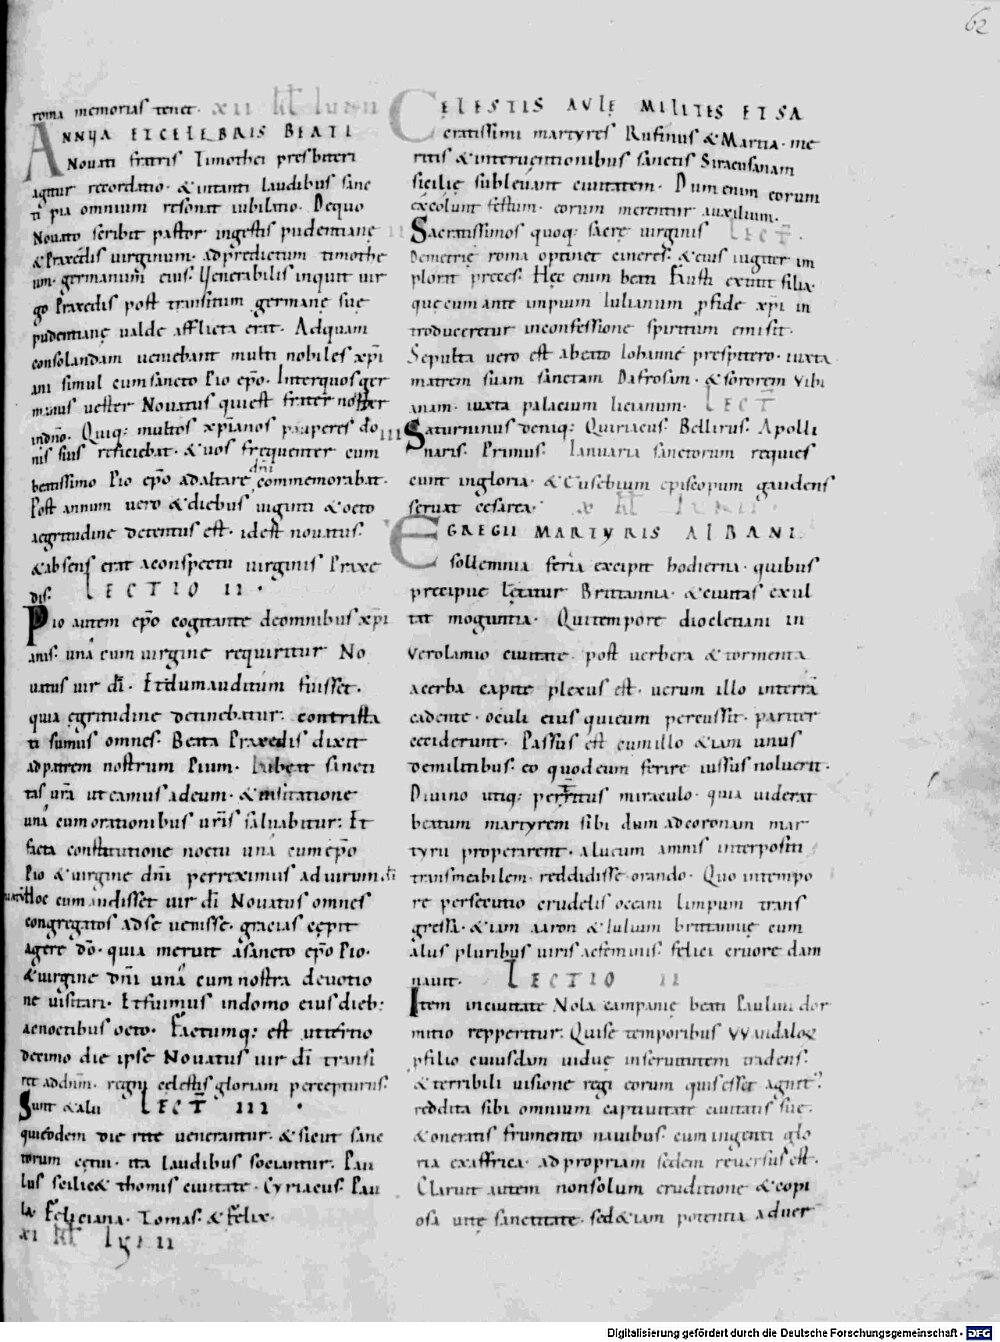 62
roma memorias tenet. xii kł iunii
ANNUA ET CELEBRIS BEATI
Nouati fratris Timothei presbiteri
agitur recordatio. & intanti laudibus sanc
ti pia omnium resonat iubilatio. De quo
Nouato scribit pastor ingestis pudentianę
& Praxedis uirginum. ad predictum timothe
um. germanum eius. Uenerabilis inquit uir
go Praxedis post transitum germanę suę
pudentianę ualde afflicta erat. Ad quam
consolandam ueniebant multi nobiles xp̄i
ani simul cum sancto Pio ep̄o. Inter quos ger
manus uester Nouatus qui est frater noster
in dn̄o. Quiq; multos xp̄ianos pauperes do
nis suis reficiebat. & uos frequenter cum
beatissimo Pio ep̄o ad altare dn̄i commemorabat.
Post annum uero & diebus uiginti & octo
aegritudine detentus est. id est nouatus.
& absens erat a conspectu uirginis Praxe
dis. LECTIO II.
Pio autem ep̄o cogitante de omnibus xp̄i
anis. una cum uirgine requiritur No
uatus uir dī. Et dum auditum fuisset.
quia ęgritudine detinebatur. contrista
ti sumus omnes. Beata Praxedis dixit
ad patrem nostrum Pium. Iubeat sancti
tas ur̄a ut eamus ad eum. & uisitatione
una cum orationibus ur̄is saluabitur. Et
facta constitutione noctu una cum ep̄o
Pio & uirgine dn̄i perreximus ad uirum dī
Hoc cum audisset uir dī Nouatus omnes
congregatos ad se uenisse. gracias cępit
agere dō. quia meruit a sancto ep̄o Pio.
& uirgine dn̄i una cum nostra deuotio
ne uisitari. Et fuimus in domo eius dieb;
ac noctibus octo. Factumq; est ut tertio
decimo die ipse Nouatus uir dī transi
ret ad dn̄m. regni cęlestis gloriam percepturus.
Sunt & alii LECT̄ III.
qui eodem die rite uenerantur. & sicut sanc
torum cętui. ita laudibus sociantur. Pau
lus scilic& thomis ciuitate. Cyriacus. Pau
la. Feliciana. Tomas. & Felix.
xi kł iunii
CELESTIS AULĘ MILITES ET SA
cratissimi martyres Rufinus & Martia. me
ritis & interuentionibus sanctis Siracusanam
sicilię subleuant ciuitatem. Dum enim eorum
excolunt festum. eorum merentur auxilium.
ii Sacratissimos quoq; sacrę uirginis LECT̄.
Demetrię roma optinet cineres. & eius iugiter im
plorat preces. Hęc enim beati Fausti extitit filia.
quę cum ante impium Iulianum p̱fide xp̄i in
troduceretur in confessione spiritum emisit.
Sepulta uero est a beato Iohanne presbitero. iuxta
matrem suam sanctam Dafrosam. & sororem Vibi
anam. iuxta palacium licianum. LECT̄
iii Saturninus deniq; Quiriacus. Bellirus. Apolli
naris. Primus. Ianuaria sanctorum requies
cunt in gloria. & Eusebium episcopum gaudens
seruat cesarea. x kł iunii.
EGREGII MARTYRIS ALBANI
sollemnia feria excipit hodierna. quibus
precipue lętatur Brittannia. & ciuitas exul
tat moguntia. Qui tempore diocletiani in
Verolamio ciuitate. post uerbera & tormenta
acerba capite plexus est. uerum illo in terrā
cadente. oculi eius qui eum percussit. pariter
ceciderunt. Passus est cum illo & iam unus
de militibus. eo quod eum ferire iussus noluerit.
Diuino utiq; perterritus miraculo. quia uiderat
beatum martyrem sibi dum ad coronam mar
tyrii properarent. alueum amnis interpositi
transmeabilem. reddidisse orando. Quo in tempo
re persecutio crudelis oceani limpum trans
gressa. & iam aaron & Iulium brittannię cum
aliis pluribus uiris ac feminis. felici cruore dam
nauit. LECTIO II
Item in ciuitate Nola campanię beati Paulini dor
mitio repperitur. Qui se temporibus VVandaloꝝ
p̱ filio cuiusdam uiduę in seruitutem tradens.
& terribili uisione regi eorum quis esset agnit;
reddita sibi omnium captiuitate ciuitatis suę.
& oneratis frumento nauibus. cum ingenti glo
ria ex affrica. ad propriam sedem reuersus est.
Claruit autem non solum eruditione & copi
osa uitę sanctitate. sed & iam potentia aduer
Digitalisierung gefördert durch die Deutsche Forschungsgemeinschaft - DFG